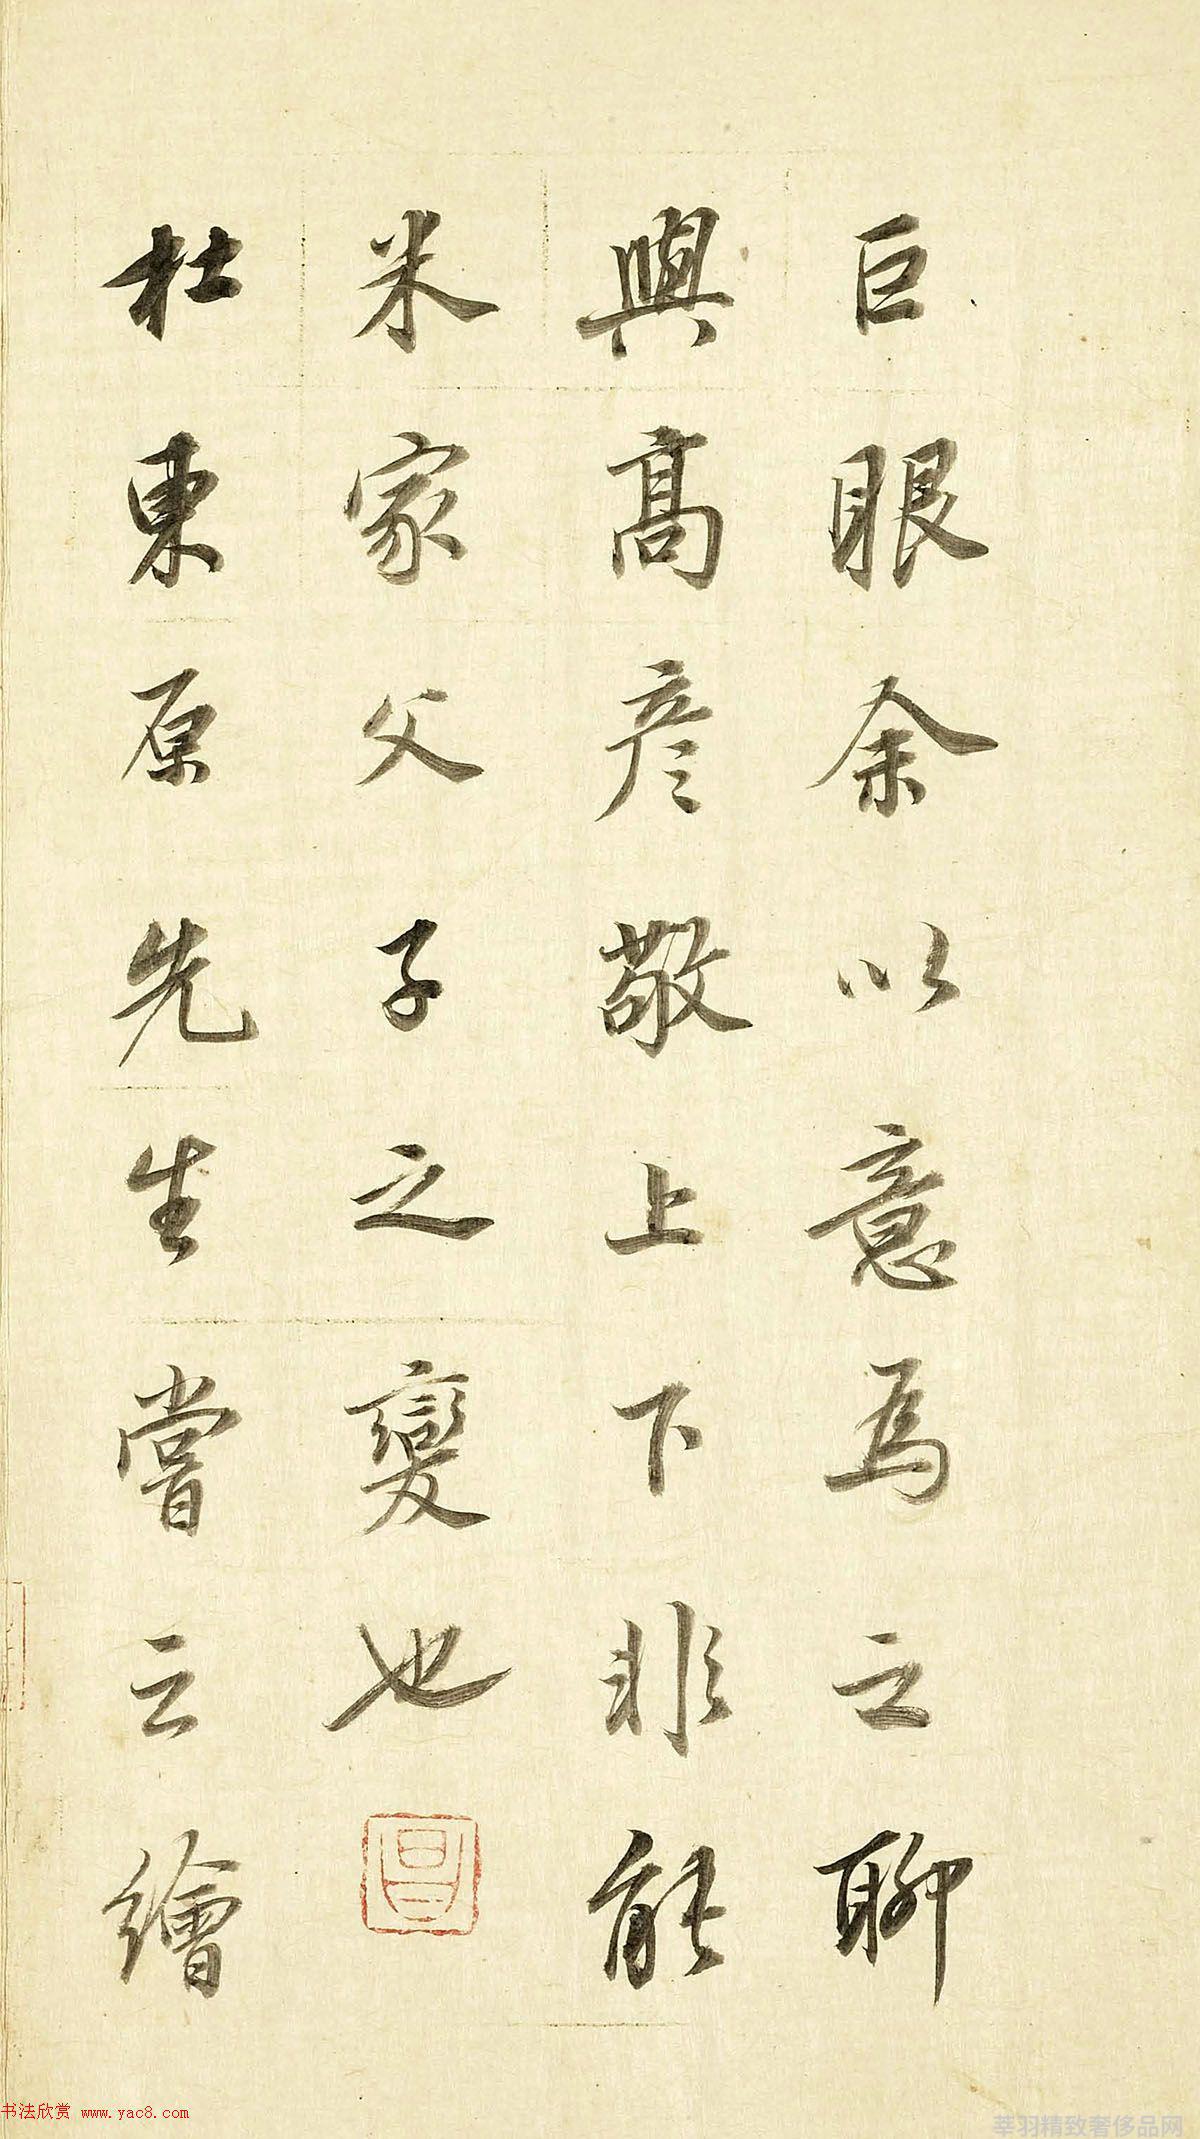 巨眼余以意為之聊
與高彦敬上下非能
米家父子之變也
杜東原先生嘗云繪
书法欣赏 www.yac8.com
莘羽精致奢侈品网